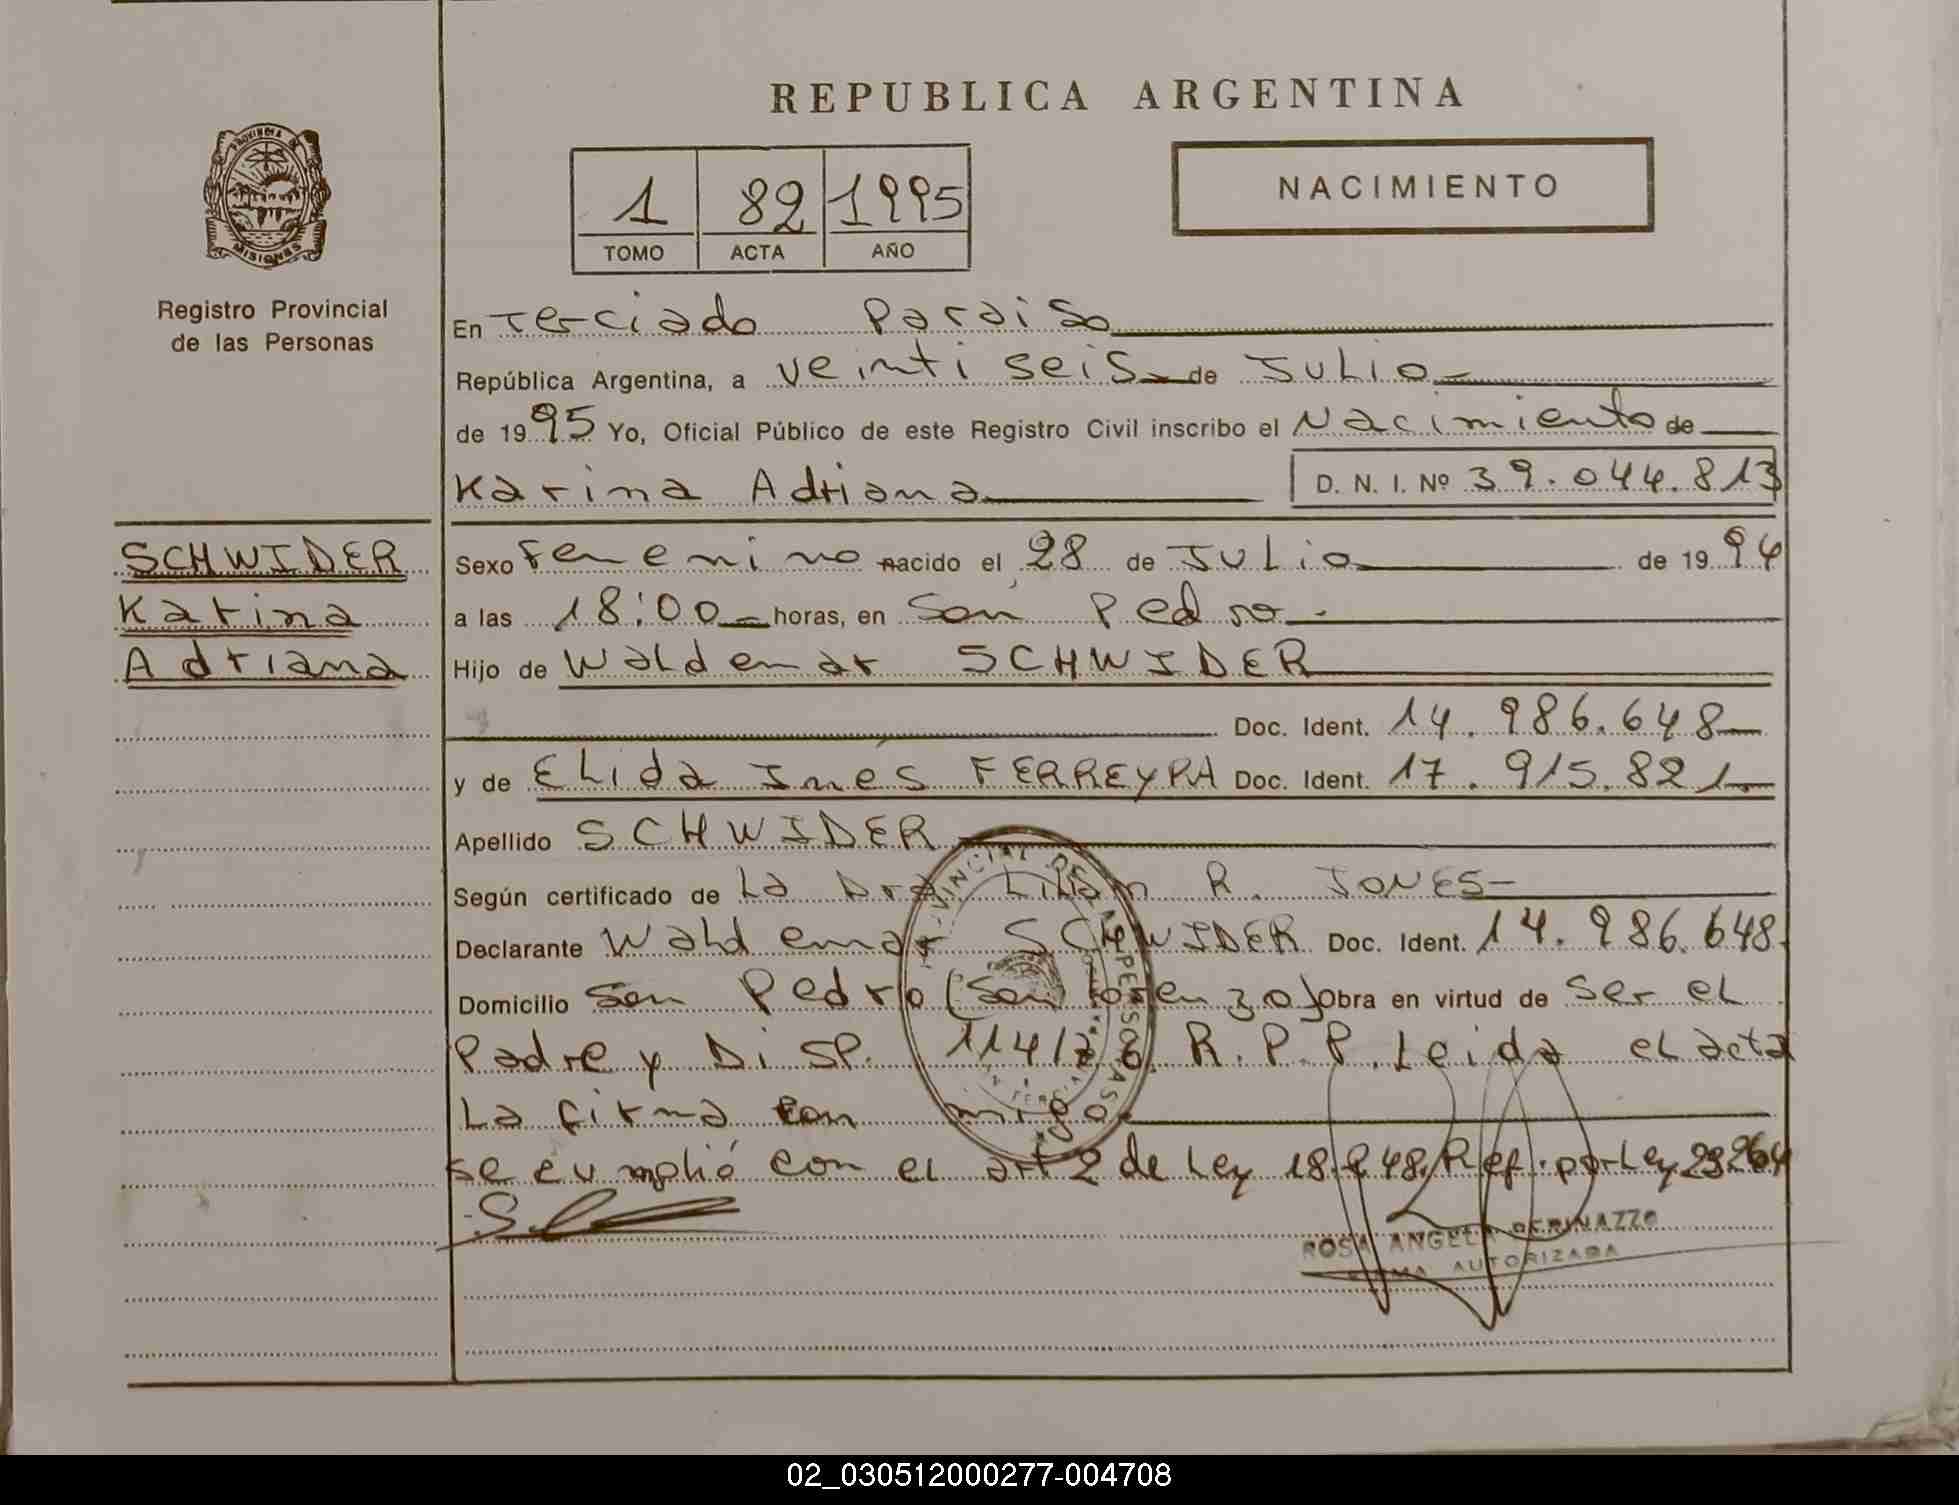 REPUBLICA ARGENTINA
PROVINCIA DE
MISIONES
1 82 1995
TOMO ACTA AÑO
NACIMIENTO
Registro Provincial
de las Personas
En Terciado Paraiso
República Argentina, a Veinti seis de Julio
de 1995 Yo, Oficial Público de este Registro Civil inscribo el Nacimiento de
Karina Adriana D. N. I. Nº 39.044.813
SCHWIDER
Karina
Adriana
Sexo Femenino nacido el 28 de Julio de 1994
a las 18:00 horas, en San Pedro.
Hijo de Waldemar SCHWIDER
Doc. Ident. 14.986.648
y de Elida Inés FERREYRA Doc. Ident. 17.915.821
Apellido SCHWIDER
Según certificado de La Dra Lilian R. JONES
Declarante Waldemar SCHWIDER Doc. Ident. 14.986.648
Domicilio San Pedro (San Lorenzo) Obra en virtud de ser el
Padre y DISP. R.P.P. Leida el acta
La firma con migo
se cumplió con el art 2 de Ley 18.248 Ref. por Ley
ROSA ANGELA
FIRMA AUTORIZADA
02_030512000277-004708